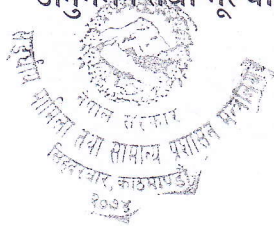 नेपाल सरकार
संघीय मामिला तथा सामान्य प्रशासन मन्त्रालय
सिंहदरवार, काठमाण्डौ
२०७४